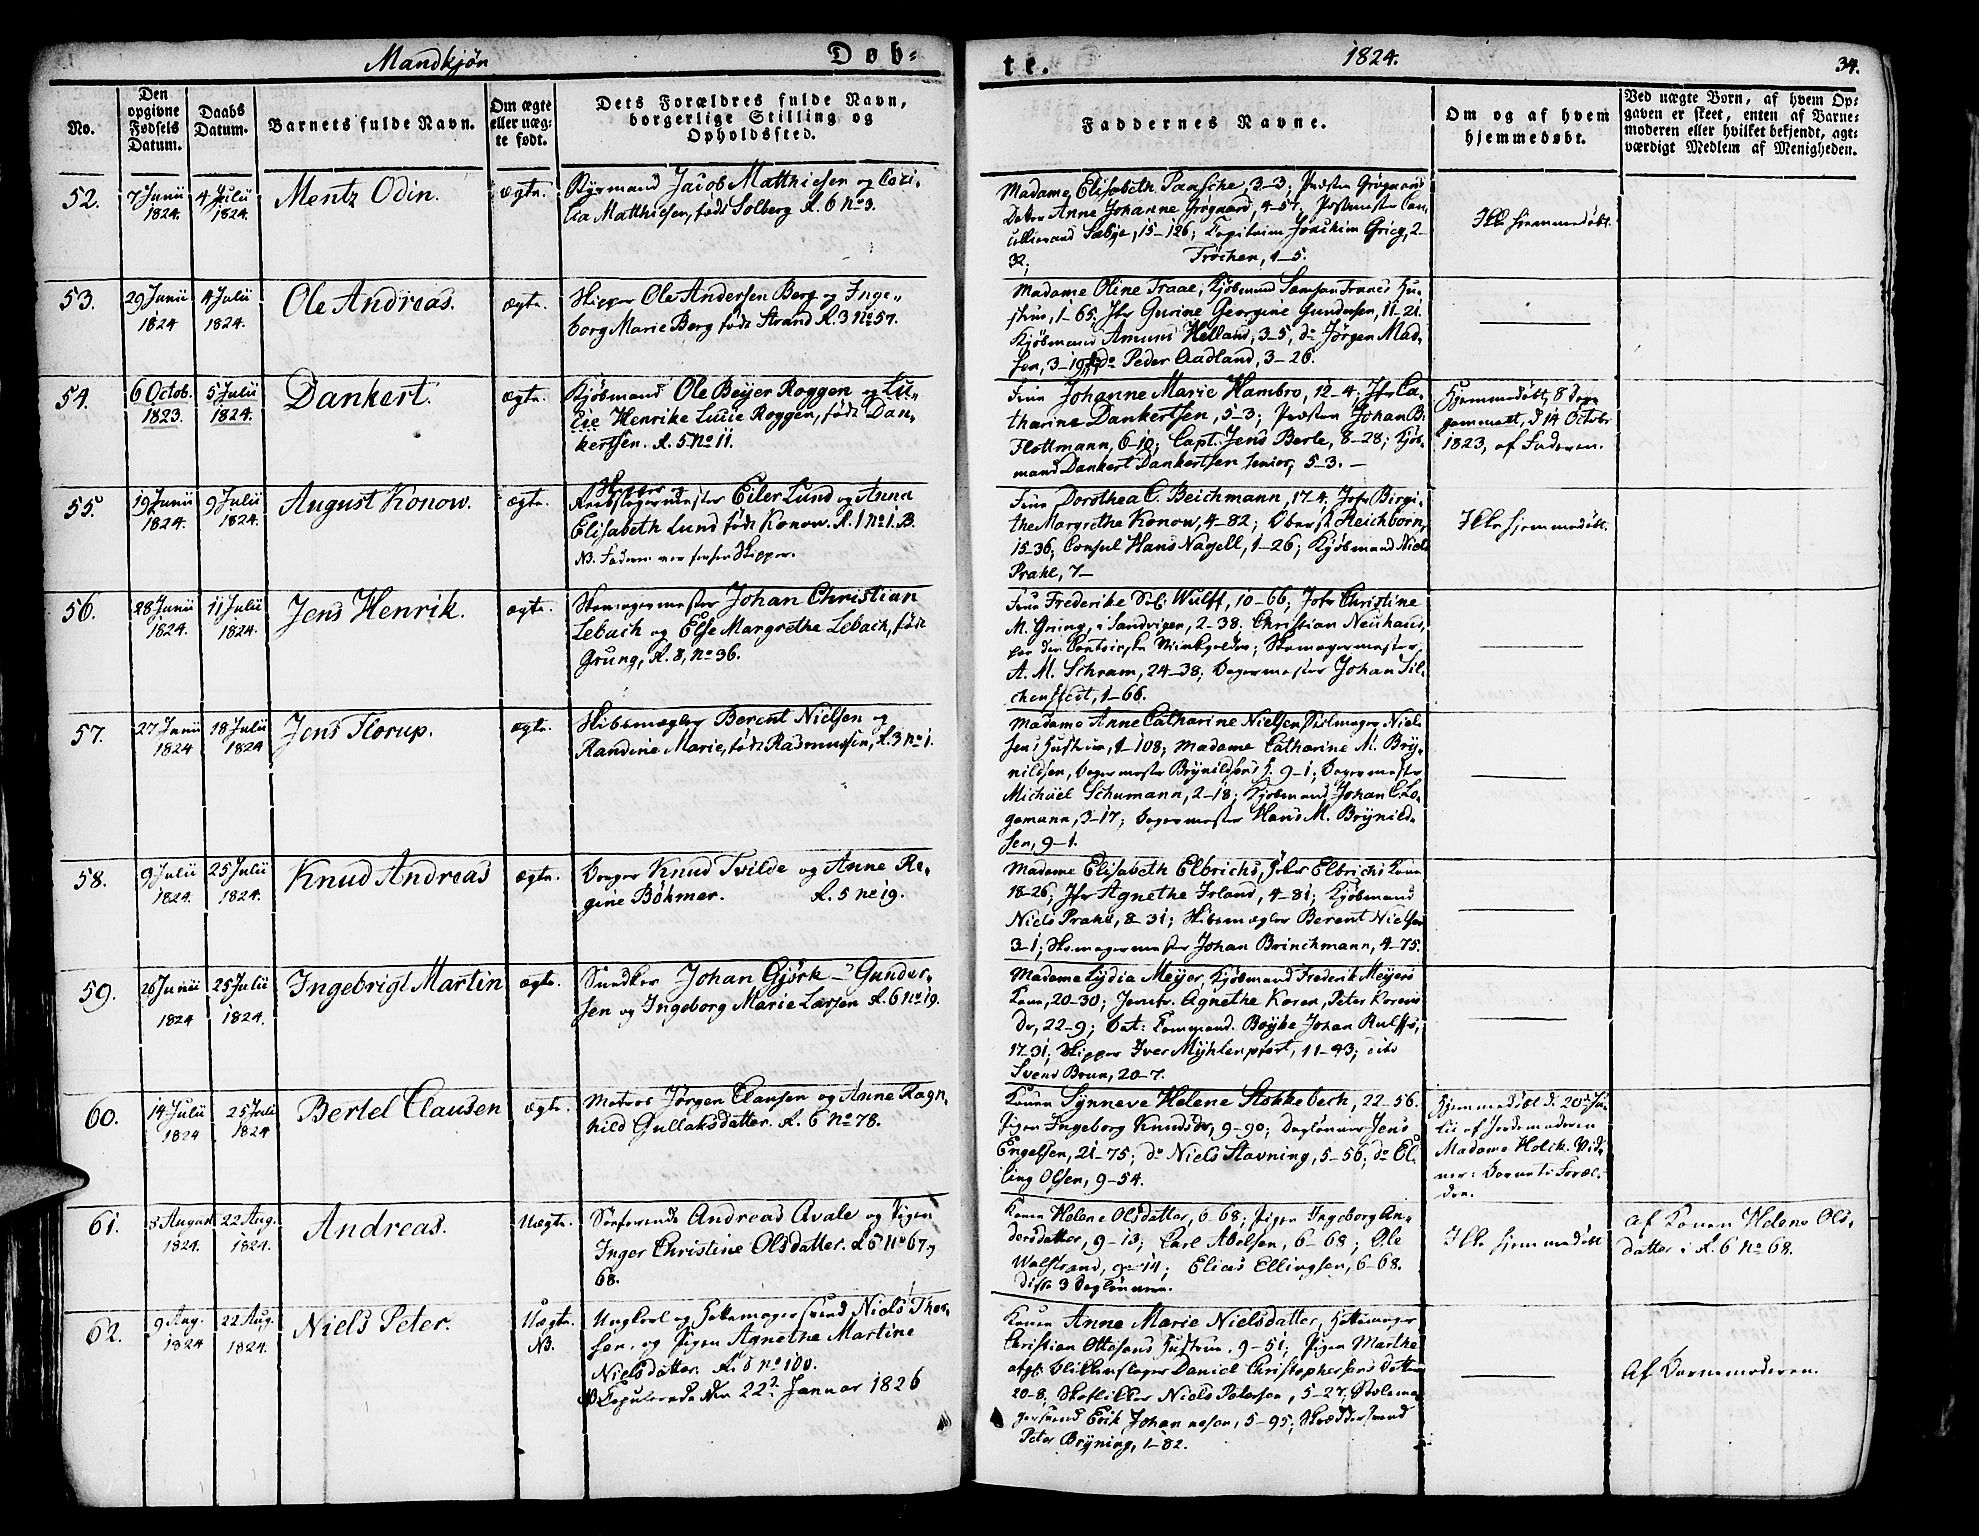 Mandkjøn Døb-
te. 1824. 34.
No.
Den opgivne Fødsels Datum.
Daabs Datum.
Barnets fulde Navn.
Om ægte eller uægte født.
Dets Forældres fulde Navn, borgerlige Stilling og Opholdssted.
Faddernes Navne.
Om og af hvem hjemmedøbt.
Ved uægte Børn, af hvem Opgaven er skeet, enten af Barnemoderen eller hvilket bekjendt, agtværdigt Medlem af Menigheden.
52. 7 Junii 1824. 4 Julii 1824. Mentz Odin. ægte.
Jacob Matthiesen og Ceci-
lia Matthiesen, født Solberg R. 6 No 3.
Madame Elisabeth Paasche, 3-3; Præsten Grøgaards
Datter Anne Johanne Grøgaard, 4-57; Postmester Can-
celliraad Sæbye, 15-126; Capitain Joachim Grieg, 2-
32; Frøchen, 1-5.
Ikke hjemmedøbt.
53. 29 Junii 1824 4 Julii 1824. Ole Andreas. ægte.
Skipper Ole Andersen Berg og Inge-
borg Marie Berg født Strand R. 3 No 57.
Madame Oline Traae, Kjøbmand Samson Traaes Hu-
strue, 1-65, Jfr Gurine Georgine Gundersen, 11-21.
Kjøbmand Amund Helland, 3-5, do Jørgen Mad-
sen, 3-19; do Peder Aadland, 3-26.
54. 6 Octob. 1823. 5 Julii 1824. Dankert. ægte.
Kjøbmand Ole Beyer Roggen og Lu-
cie Henrike Lucie Roggen, født Dan-
kertsen. R. 5 No 11.
Frue Johanne Marie Hambro, 12-4; Jfr Ca-
tharine Dankertsen, 5-3; Præsten Johan B.
Flottmann, 6-10; Capt. Jens Berle, 8-28; Kjøb-
mand Dankert Dankertsen senior, 5-3.
Hjemmedøbt, 8 Dage
gammelt, d 14 Octobr
1823, af Faderen.
55. 19 Junii 1824. 9 Julii 1824. August Konow. ægte.
Skipper og
Reebslagermester Eiler Lund og Anna
Elisabeth Lund født Konow. R. 1 No 1. B.
NB. Faderen var forhen Skipper.
Frue Dorothea C. Beichmann, 17-4; Jofr Birgi-
the Margrethe Konow, 4-82; Oberst Reichborn,
15-36, Consul Hans Nagell, 1-26; Kjøbmand Niels
Prahl, 7-
Ikke hjemmedøbt.
56. 28 Junii 1824. 11 Julii 1824. Jens Henrik. ægte.
Skomagermester Johan Christian
Lebach og Else Margrethe Lebach, født
Grung, R. 8, No 36.
Frue Frederike Wulff, 10-66; Jofr Christine
M. Grung, i Sandvigen, 2-38. Christian Neuhaus,
Skomagermester
A. M. Schram, 24-38; Bagermester Johan Sil-
chenstedt, 1-66.
57. 27 Junii 1824 18 Julii 1824 Jens Florup. ægte.
Skibsmægler Berent Nielsen og
Randine Marie, født Rasmussen, R. 3 No 1.
Madame Anne Catharine Nielsen, Niel-
sens Hustrue, 1-108; Madame Catharine M. Bry-
nildsen, Bagermester Brynildsens H. 9-1; Bagermester
Michael Schumann, 2-18; Kjøbmand Johan C. Lo-
gemann, 3-17; Bagermester Hans M. Brynild-
sen, 9-1.
58. 9 Julii 1824. 25 Julii 1824. Knud Andreas ægte.
Bager Knud Tvilde og Anne Re-
gine Böhmer. R. 5 No 19.
Madame Elisabeth Elbrichs, Elbrichs Kone
18-26; Jfr Agnethe Irland, 4-81; Kjøbmand
Niels Prahl, 8-31; Skibsmægler Berent Nielsen
3-1; Skomagermester Johan Brinchmann, 4-75.
59. 26 Junii 1824 25 Julii 1824. Ingebrigt Martin ægte.
Snedker Johan Gjørk Gunder-
sen og Ingeborg Marie Larsen R. 6 No 19.
Madame Lydia Meyer, Kjøbmand Frederik Meyers
Kone, 20-30; Jomfr. Agnethe Koren, Peter Korens
Dr, 22-9; Boyke Johan Rulffs,
17-31; Skipper Iver Mühlenpfort, 11-43; dito
Svend Brun, 20-7.
60. 14 Julii 1824 25 Julii 1824 Bertel Clausen ægte.
Matros Jørgen Clausen og Anne Ragn-
hild Gullaksdatter. R. 6 No 78.
Konen Synneve Helene Stokkebech, 22-56.
Pigen Ingeborg Knudsdr, 9-90; Dagleiner Jens
Engelsen, 21-75; do Niels Stavning, 5-56; do El-
ling Olsen, 9-54.
Hjemmedøbt d. 20 Ju-
lii af Jordemoderen
Madame Holck. Vid-
ner: Barnets Foræl-
dre.
61. 8 August 1824. 22 Aug. 1824. Andreas. Uægte.
Søefarende Andreas Avale og Pigen
Inger Christine Olsdatter. R 6 No 67 og
68.
Konen Helene Olsdatter, 6-68; Pigen Ingeborg An-
dersdatter, 9-13; Carl Abelsen, 6-68; Ole
Walstrand, 9-14; Elias Ellingsen, 6-68.
Disse 3 Dagleinere.
Ikke hjemmedøbt
Af Konen Helene Ols-
datter i R. 6 No 68.
62. 9 Aug. 1824 22 Aug. 1824. Niels Peter. Uægte. NB.
Ungkarl og Hattemagersvend Niels Thor-
sen, og Pigen Agnethe Martine
Nielsdatter. R. 6 No 100.
NB Copulerede den 22de Januar 1826
Konen Anne Marie Nielsdatter, Hattemager
Christian Ottesens Hustrue, 9-51; Pigen Marthe
Blikkenslager Daniel Christophersens Datter
20-8; Skoflikker Niels Petersen, 5-27; Stolema-
gersvend Erik Johannesen, 5-95; Skræddersvend
Peter Bryning, 1-82.
Af Barnemoderen.